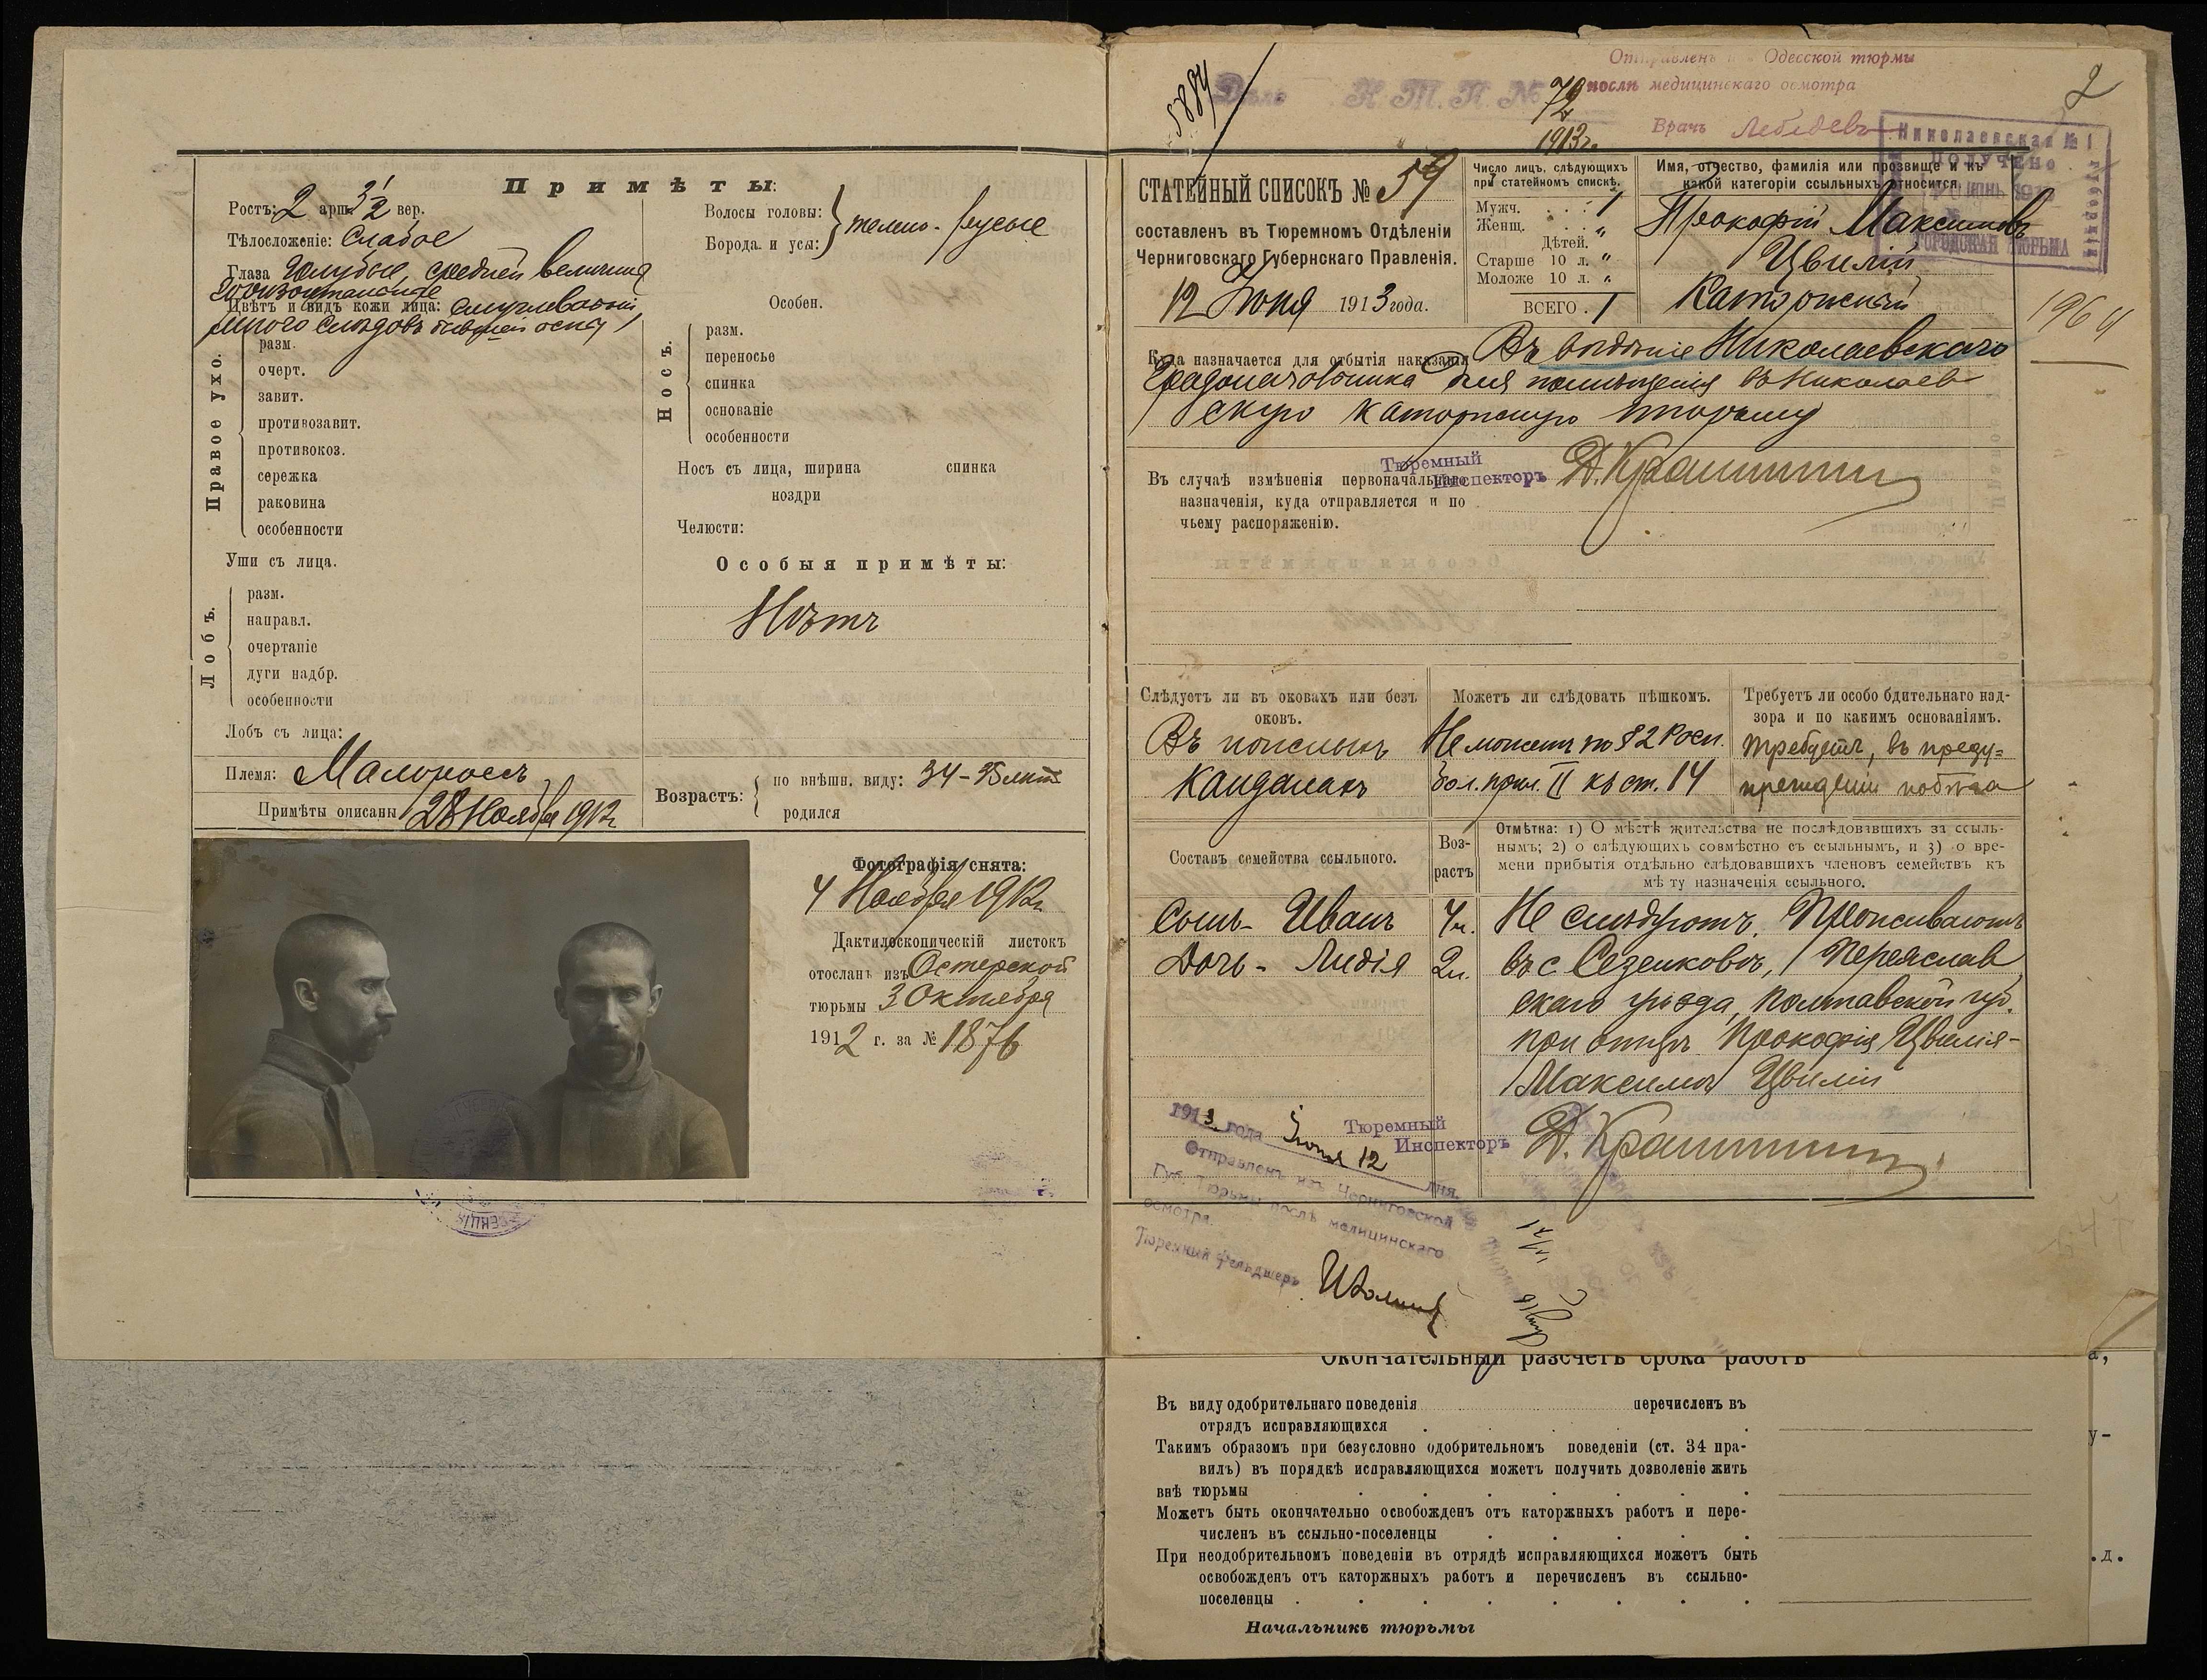 Примѣты:
Ростъ: 2 арш. 3 1/2 вер.
Тѣлосложеніе: Слабое
Глаза Голубые, средней величины
горизонтальные
Цвѣтъ и видъ кожи лица: смугловатый
много слѣдовъ бывшей оспы
Правое ухо.
разм.
очерт.
завит.
противозавит.
противокоз.
сережка
раковина
особенности
Уши съ лица.
Лобъ.
разм.
направл.
очертаніе
дуги надбр.
особенности
Лобъ съ лица:
Племя: Малороссъ
Примѣты описаны 28 Ноября 1912 г.
Волосы головы:
Борода и усы:
темно-русые
Особен.
Носъ.
разм.
переносье
спинка
основаніе
особенности
Носъ съ лица, ширина спинка
ноздри
Челюсти:
Особыя примѣты:
Нѣтъ
Возрастъ:
по внѣшн. виду: 34-35 лѣтъ
родился
Фотографія снята:
4 Ноября 1912 г.
Дактилоскопическій листокъ
отосланъ изъ Остерской
тюрьмы 3 Октября
1912 г. за № 1876
Отправленъ Одесской тюрмы
послѣ медицинскаго осмотра
Врачъ Лебедевъ
5884
Дѣло Н. Т. П. № 72
1913 г.
2
Николаевская № 1
ПОЛУЧЕНО
ГОРОДСКАЯ ТЮРЬМА
1964
СТАТЕЙНЫЙ СПИСОКЪ № 59
составленъ въ Тюремномъ Отдѣленіи
Черниговскаго Губернскаго Правленія.
12 Іюня 1913 года.
Число лицъ, слѣдующихъ
при статейномъ спискѣ.
Мужч. . . . 1
Женщ. . . „
Дѣтей.
Старше 10 л. „
Моложе 10 л. „
ВСЕГО . 1
Имя, отчество, фамилія или прозвище и къ
какой категоріи ссыльныхъ относится
Прокофій Максимовъ
Цвилій
Каторжный
Куда назначается для отбытія наказанія Въ вѣдѣніе Николаевскаго
Градоначальника для помѣщенія въ Николаев
скую каторжную тюрьму
Тюремный
Инспекторъ
Въ случаѣ измѣненія первоначальнаго
назначенія, куда отправляется и по
чьему распоряженію.
Слѣдуетъ ли въ оковахъ или безъ
оковъ.
Въ ножныхъ
кандалахъ
Можетъ ли слѣдовать пѣшкомъ.
Не можетъ по § 2 Росп.
бол. прил. II къ ст. 14
Требуетъ ли особо бдительнаго над-
зора и по какимъ основаніямъ.
Требуетъ, въ преду-
прежденіи побѣга
Составъ семейства ссыльного.
Воз-
растъ
Отмѣтка: 1) О мѣстѣ жительства не послѣдовавшихъ за ссыль-
нымъ; 2) о слѣдующихъ совмѣстно съ ссыльнымъ, и 3) о вре-
мени прибытія отдѣльно слѣдовавшихъ членовъ семействъ къ
мѣсту назначенія ссыльного.
Сынъ - Иванъ 4 л. Не слѣдуютъ. Проживаютъ
Дочь - Лидія 2 л. въ с. Сезенковѣ, Переяслав
скаго уѣзда, Полтавской губ.
при отцѣ Прокофія Цвилія-
Максимѣ Цвиліи
Тюремный
Инспекторъ
1913 года Іюня 12 дня.
Отправленъ изъ Черниговской
Губ. Тюрьмы послѣ медицинскаго
осмотра.
Тюремный фельдшеръ
Окончательный разсчетъ срока работъ
Въ виду одобрительнаго поведенія перечисленъ въ
отрядъ исправляющихся
Такимъ образомъ при безусловно одобрительномъ поведеніи (ст. 34 пра-
вилъ) въ порядкѣ исправляющихся можетъ получить дозволеніе жить
внѣ тюрьмы
Можетъ быть окончательно освобожденъ отъ каторжныхъ работъ и пере-
численъ въ ссыльно-поселенцы
При неодобрительномъ поведеніи въ отрядѣ исправляющихся можетъ быть
освобожденъ отъ каторжныхъ работъ и перечисленъ въ ссыльно-
поселенцы
Начальникъ тюрьмы
а,
у-
.д.